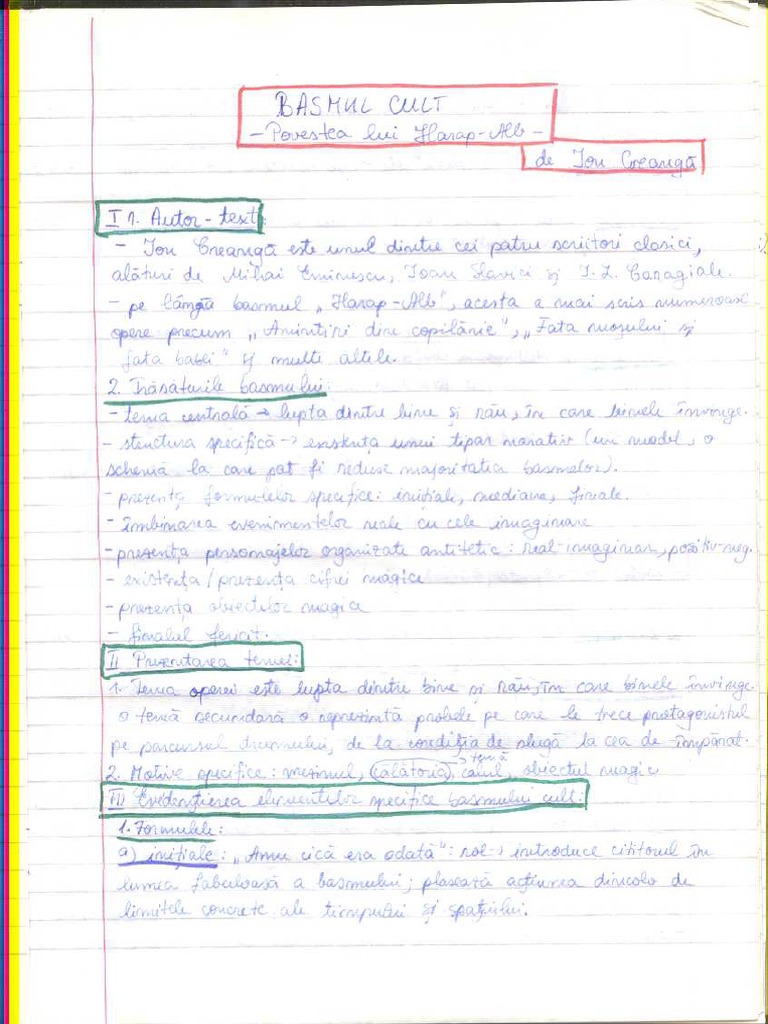 BASMUL CULT
- Povestea lui Harap-Alb -
de Ion Creangă
I 1. Autor - text:
- Ion Creangă este unul dintre cei patru scriitori clasici,
alături de Mihai Eminescu, Ioan Slavici și I. L. Caragiale.
- pe lângă basmul „Harap-Alb", acesta a mai scris numeroase
opere precum „Amintiri din copilărie", „Fata moșului și
fata babei" și multe altele.
2. Trăsăturile basmului:
- tema centrală → lupta dintre bine și rău, în care binele învinge.
- structura specifică → existența unui tipar narativ (un model, o
schemă la care pot fi reduse majoritatea basmelor).
- prezența formulelor specifice: inițiale, mediane, finale.
- îmbinarea evenimentelor reale cu cele imaginare
- prezența personajelor organizate antitetic: real-imaginar, pozitiv-neg.
- existența / prezența cifrei magice
- prezența obiectelor magice
- finalul fericit.
II Prezentarea temei:
1. Tema operei este lupta dintre bine și rău, în care binele învinge.
O temă secundară o reprezintă probele pe care le trece protagonistul
pe parcursul drumului, de la condiția de slugă la cea de împărat.
2. Motive specifice: mezinul, călătoria, → temă calul, obiectul magic
III Evidențierea elementelor specifice basmului cult:
1. Formulele:
a) inițiale: „Amu cică era odată": rol → introduce cititorul în
lumea fabuloasă a basmului; plasează acțiunea dincolo de
limitele concrete ale timpului și spațiului.